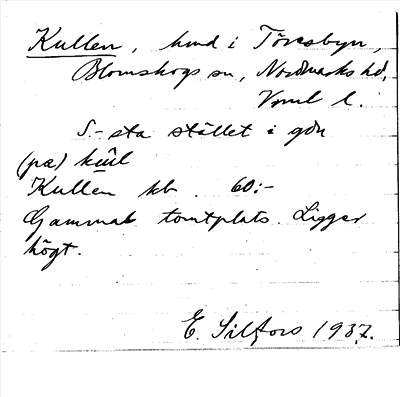 Kullen, hmd i Töresbyn,
Blomskogs sn, Nordmarks hd,
Vrml l.
S.-sta stället i gdn
(pœ) kûl
Kullen kb. 60:-
Gammal tomtplats. Ligger
högt.
E. Silfors 1937.